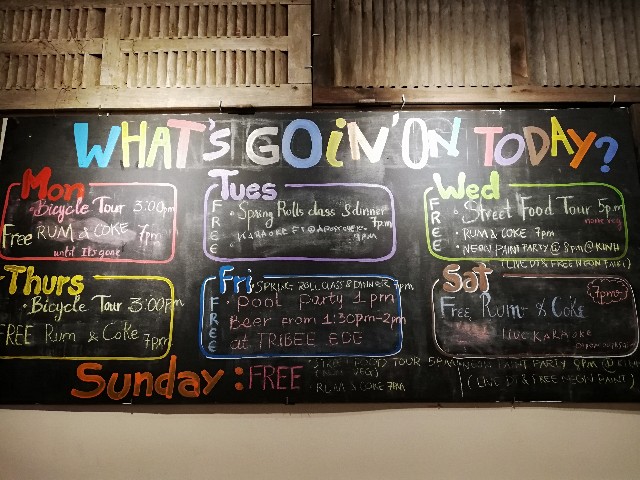 WHAT'S GOiN' ON TODAY?
Mon
Bicycle Tour 3:00pm
Free RUM & COKE 7pm
until Its gone
Tues
FREE
Spring Rolls class & dinner
7pm
KARAOKE
9pm
Wed
FREE
Street Food Tour 5pm
none veg
RUM & COKE 7pm
NEON PAINT PARTY @ 8pm @
(LIVE DJ & FREE NEON PAINT)
Thurs
Bicycle Tour 3:00pm
FREE Rum & Coke 7pm
Fri
FREE
SPRING ROLL CLASS & DINNER 7pm
Pool Party 1pm
Beer from 1:30pm-2pm
at TRIBEE EDE
Sat
7pm
Free Rum & Coke
LIVE KARAOKE
Sunday: FREE
STREET FOOD TOUR 5PM
RUM & COKE 7PM
NEON PAINT PARTY 8PM @
(LIVE DJ & FREE NEON PAINT)